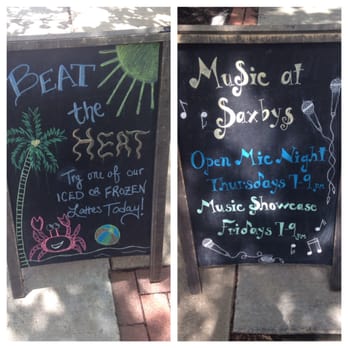 BEAT
the
HEAT
Try one of our
ICED OR FROZEN
Lattes Today!
Music at
Saxbys
Open Mic Night
Thursdays 7-9pm
Music Showcase
Fridays 7-9pm